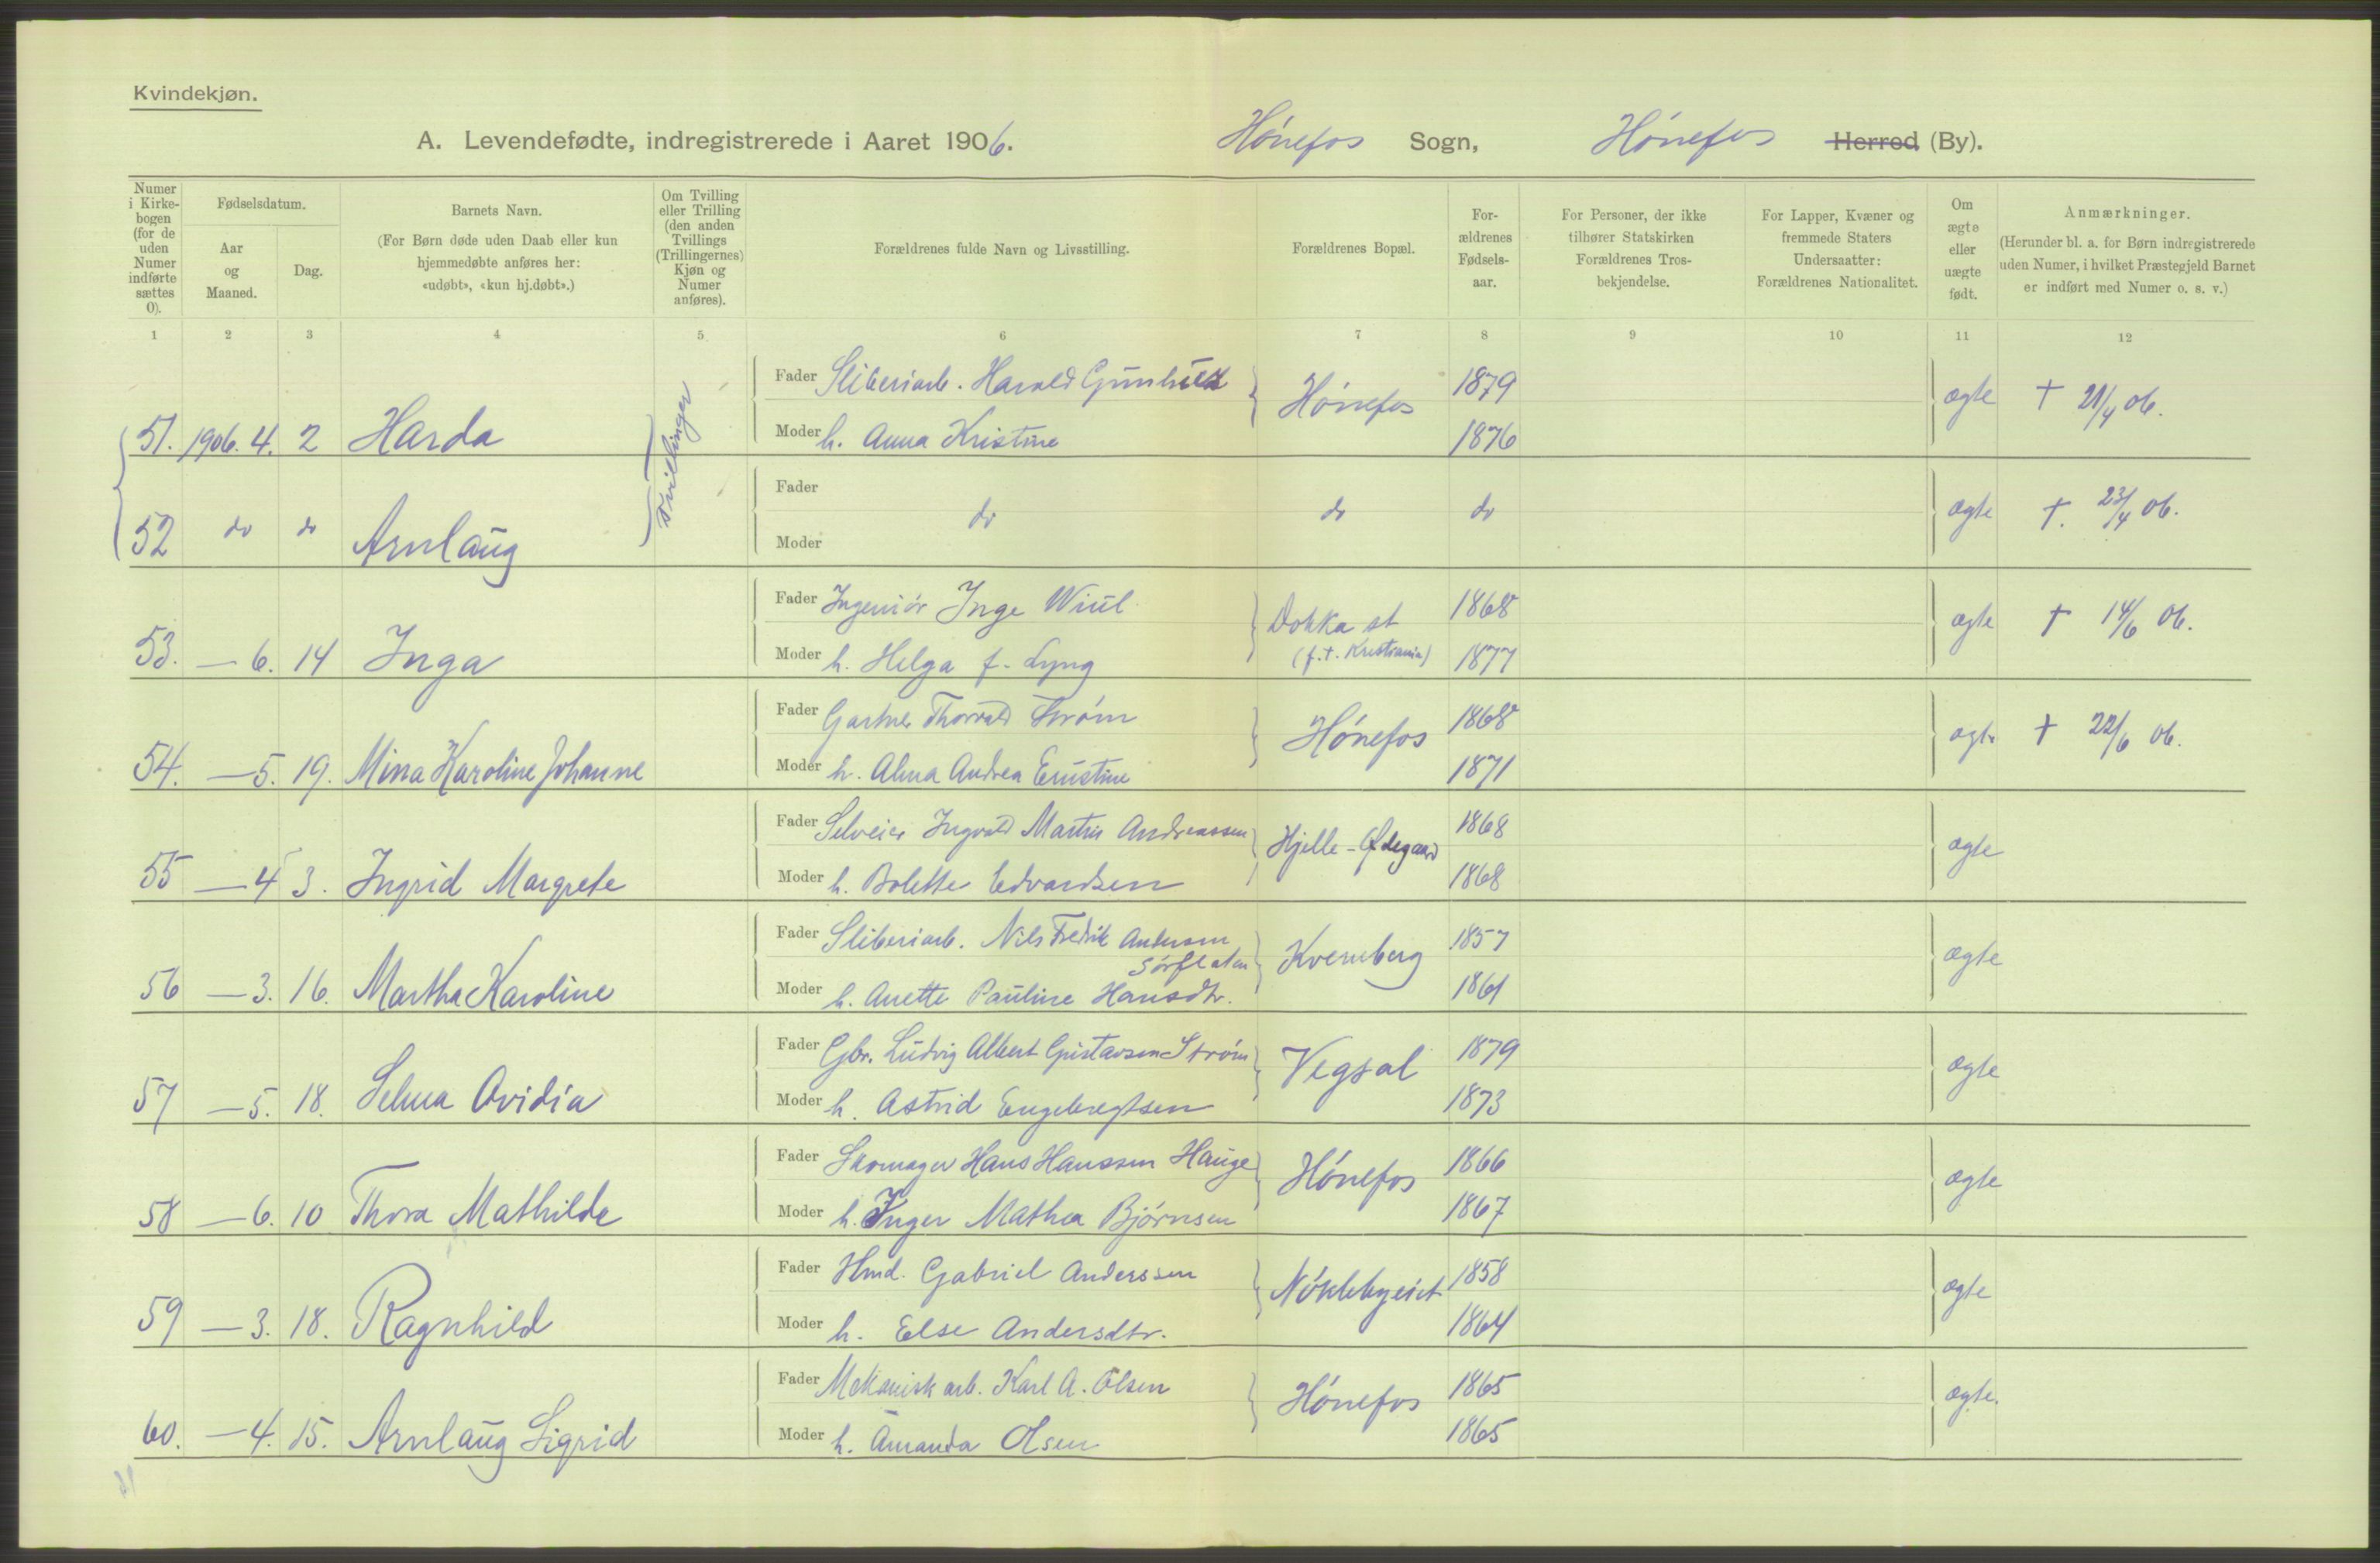 Kvindekjøn.
A. Levendefødte, indregistrerede i Aaret 1906. Hönefos Sogn, Hönefos Herred (By).
Numer i Kirkebogen (for de uden Numer indførte sættes 0).
Fødselsdatum.
Aar og Maaned.
Dag.
Barnets Navn.
(For Børn døde uden Daab eller kun hjemmedøbte anføres her: «udøbt», «kun hj.døbt».)
Om Tvilling eller Trilling (den anden Tvillings (Trillingernes) Kjøn og Numer anføres).
Forældrenes fulde Navn og Livsstilling.
Forældrenes Bopæl.
Forældrenes Fødselsaar.
For Personer, der ikke tilhører Statskirken Forældrenes Trosbekjendelse.
For Lapper, Kvæner og fremmede Staters Undersaatter: Forældrenes Nationalitet.
Om ægte eller uægte født.
Anmærkninger.
(Herunder bl. a. for Børn indregistrerede uden Numer, i hvilket Præstegjeld Barnet er indført med Numer o. s. v.)
1 2 3 4 5 6 7 8 9 10 11 12
Fader Sliberiarb. Harald 1879
51. 1906. 4. 2 Harda Tvillinger Moder h. Anna Kristine Hönefos 1876 ægte † 21/4 06.
Fader
52 do do Arnlaug do do do ægte †. 23/4 06.
Moder
Fader Ingeniör Inge Wiul 1868
53. — 6. 14 Inga Moder h. Helga f. Lyng Dokka st (f.t. Kristiania) 1877 ægte † 14/6 06.
Fader Gartner Thorvald Ström 1868
54. — 5. 19. Mina Karoline Johanne Moder h. Alma Andrea Ernstine Hönefos 1871 ægte † 22/6 06.
Fader Selveier Ingvald Martin Andreassen 1868
55 — 4 3. Ingrid Margrete Moder h. Bolette Edvardsen Hjelle-Ødegaard 1868 ægte
Fader Sliberiarb. Nils Fredrik Andersen Sörflaten 1857
56 — 3. 16. Martha Karoline Moder h. Anette Pauline Hansdtr. Kvernberg 1861 ægte
Fader Gbr. Ludvig Albert Gustavsen Ström 1879
57 — 5. 18. Selma Ovidia Moder h. Astrid Engebregtsen Vegsal 1873 ægte
Fader Skomager Hans Hanssen Hauge 1866
58 — 6. 10 Thora Mathilde Moder h. Inger Mathea Björnsen Hönefos 1867 ægte
Fader Hmd. Gabriel Anderssen 1858
59 — 3. 18. Ragnhild Moder h. Else Andersdtr. 1864 ægte
Fader Mekanisk arb. Karl A. Olsen 1865
60. — 4. 15. Arnlaug Sigrid Moder h. Amanda Olsen Hönefos 1865 ægte.